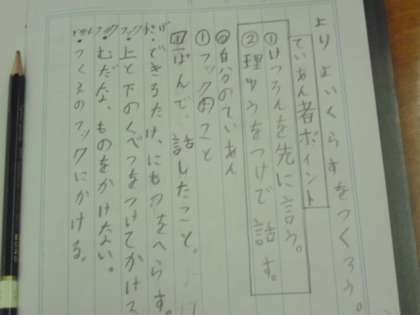 よりよいくらすをつくろう。
ていあん者ポイント
①けつろんを先に言う。
②理ゆうをつけて話す。
自分のていあん
①フックのこと
ぱんで、話したこと。
・できるだけ、にもつをへらす。
・上と下のくべつをつけてかける
・むだな、ものをかけない。
・つくえのフックにかける。